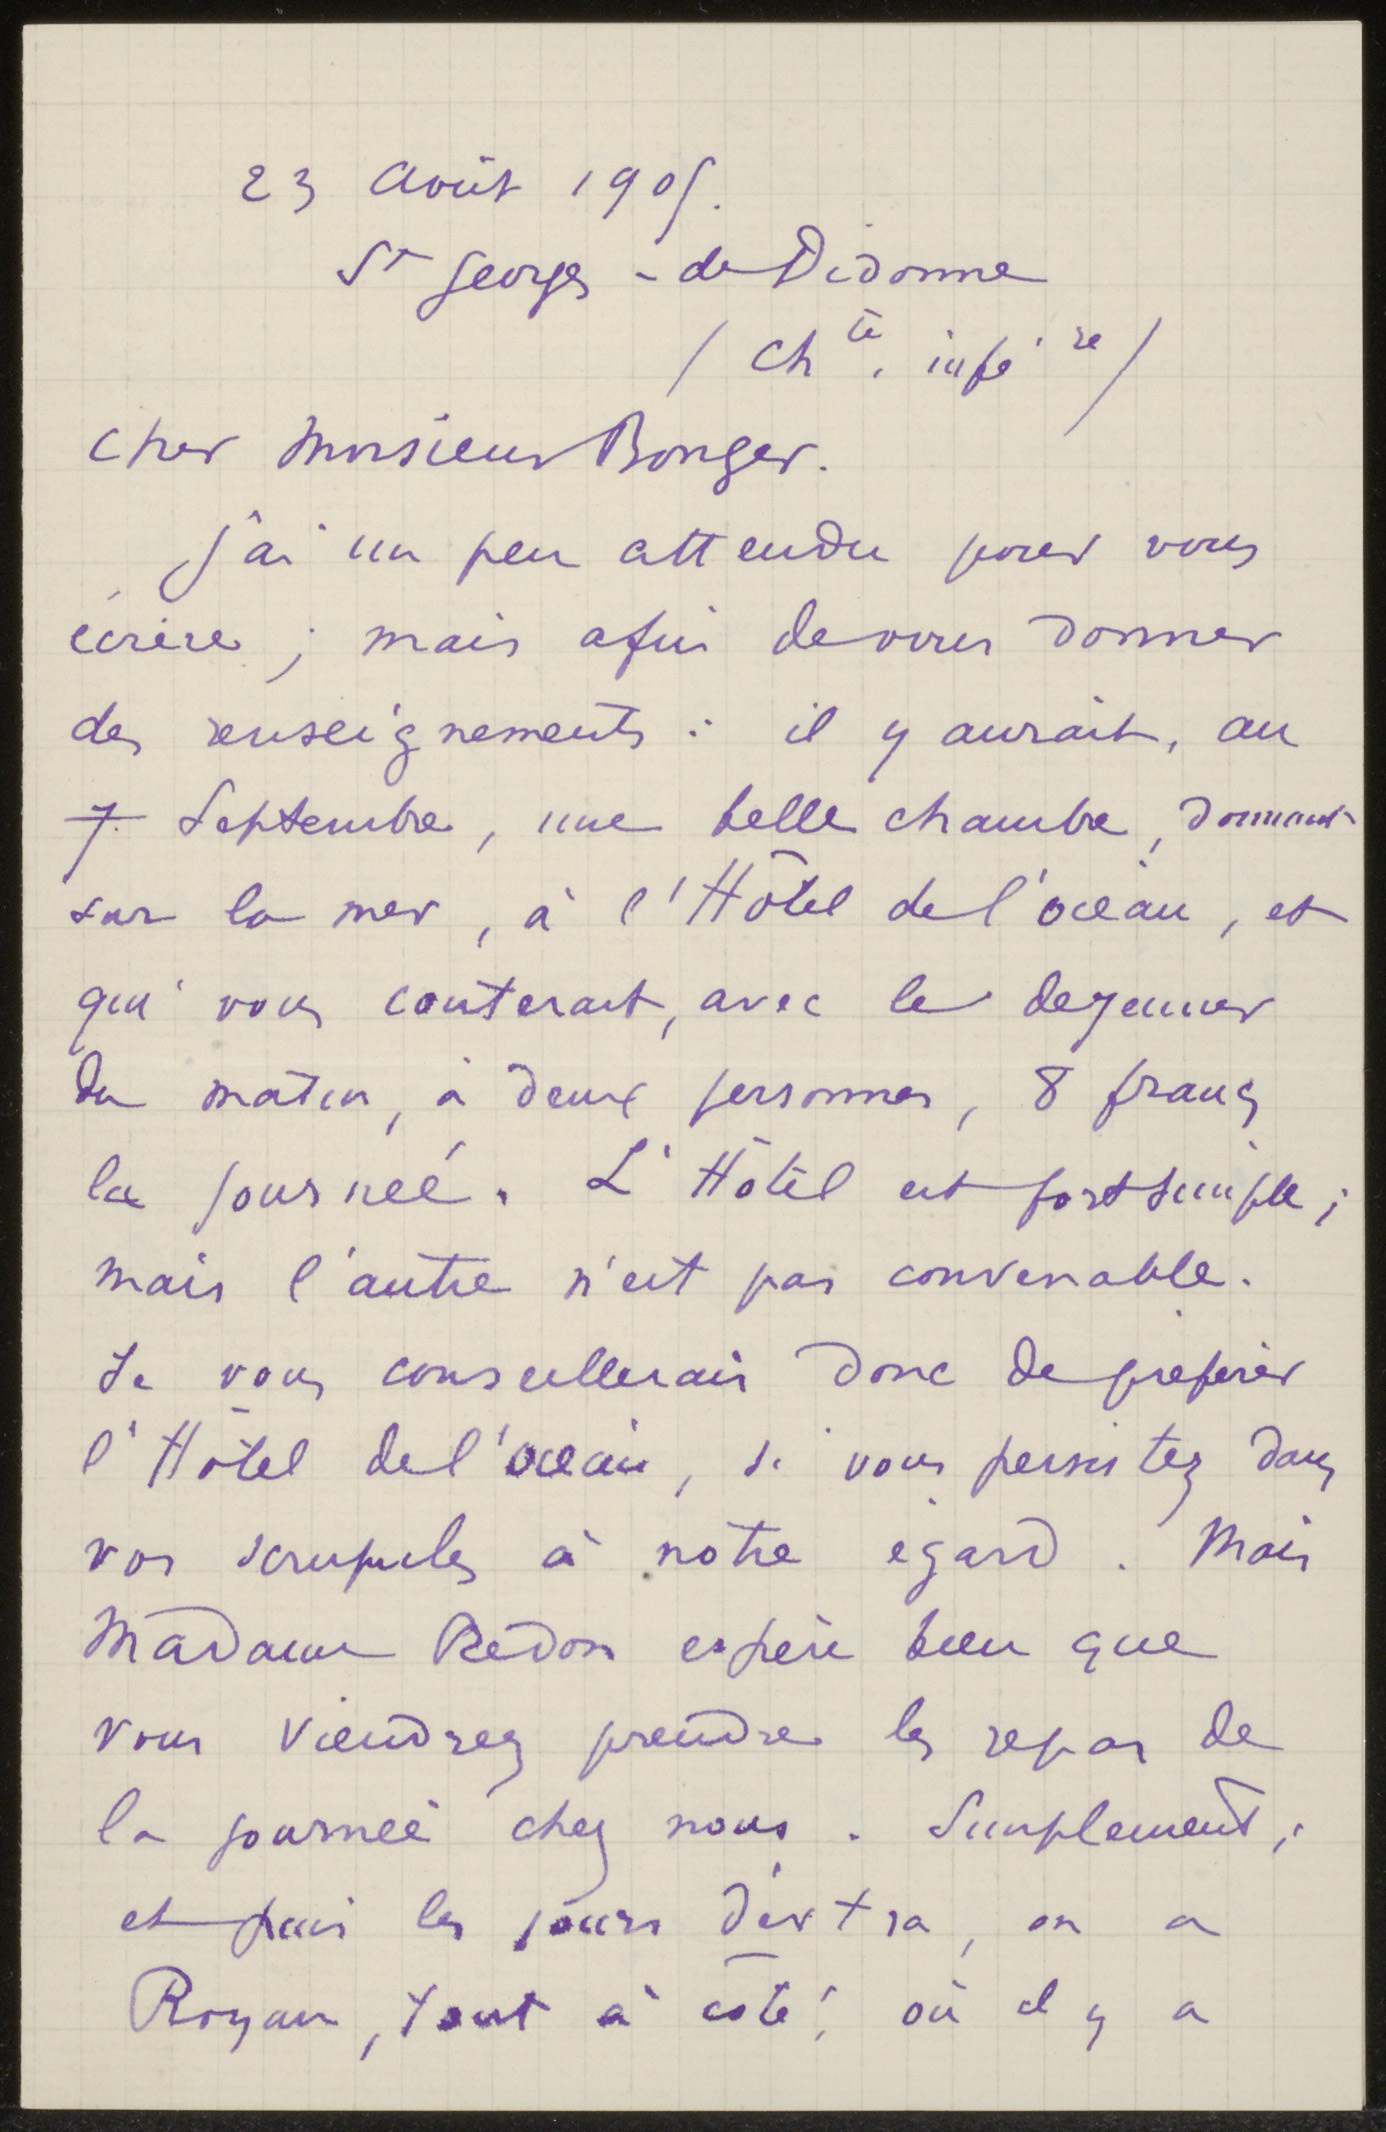 23 Août 1905.
St Georges - de Didonne
( Chte. infé re )
Cher Monsieur Bonger.
J'ai un peu attendu pour vous
écrire ; mais afin de vous donner
des renseignements : il y aurait, au
7 Septembre, une belle chambre, donnant
sur la mer, à l'Hôtel de l'océan, et
qui vous couterait, avec le dejeuner
du matin, à deux personnes, 8 francs
la journeé. L'Hôtel est fort simple ;
mais l'autre n'est pas convenable.
Je vous conseillerais donc de préferer
l'Hôtel de l'océan, si vous persistez dans
vos scrupules à nôtre égard. Mais
Madame Redon espère bien que
vous viendrez prendre les repas de
la journeé chez nous. Simplement,
et puis les jours d'extra, on a
Royan, tout à côté, où il y a